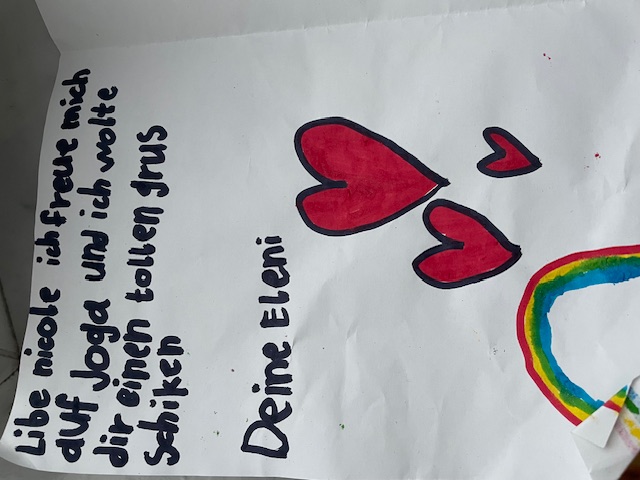 Libe nicole ich freue mich
auf Joga und ich wolte
dir einen tollen grus
Schiken
Deine Eleni